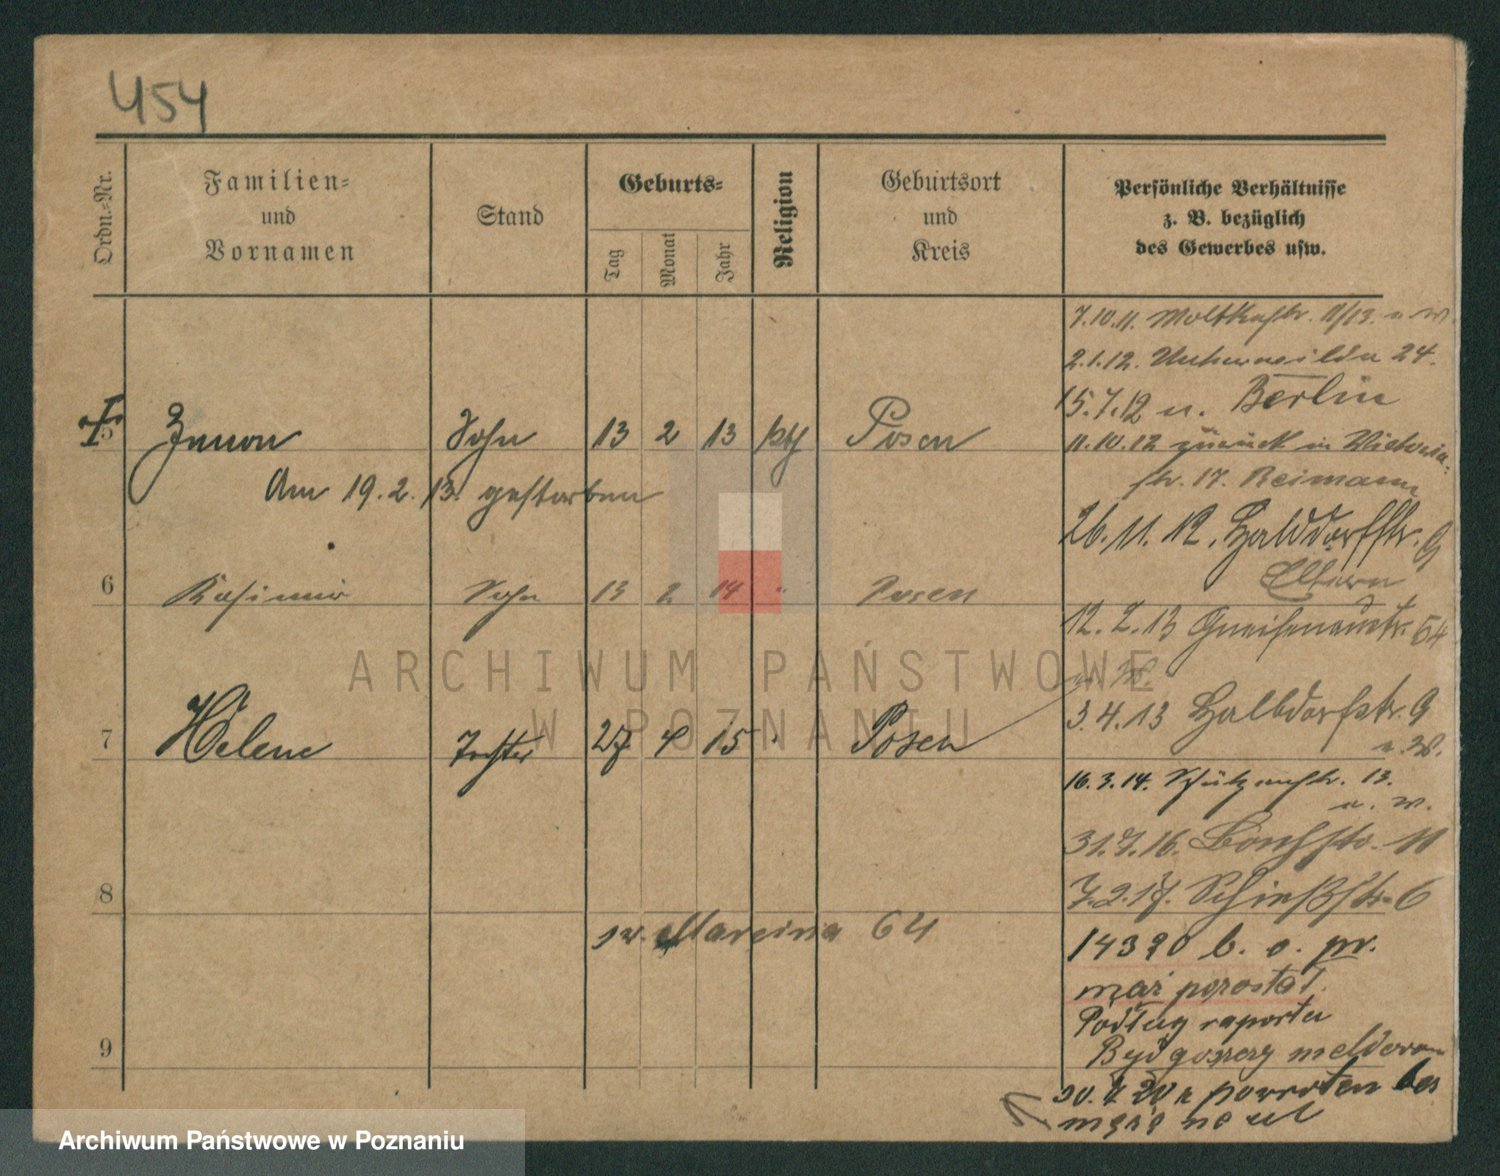 454
Ordn.-Nr.
Familien-
und
Vornamen
Stand
Geburts-
Tag
Monat
Jahr
Religion
Geburtsort
und
Kreis
Persönliche Verhältnisse
z. B. bezüglich
des Gewerbes usw.
7.10.11. Moltkestr. 11/13. u. w.
2.1.12. Unterwilda 24.
15.7.12 u. Berlin
11.10.12 zurück in Victoria-
str. 17. Reimann
26.11.12. Halbdorfstr. 9
Eltern
12.2.13 Gneisenaustr. 54
3.4.13 Halbdorfstr. 9
u. W.
16.3.14. Schützenstr. 13.
u. w.
31.7.16. 11
7.2.17. Schießstr. 6
14320 b. o. pr.
mąż pozostał.
Podług raportu
Bydgoszczy
powrócen bes
5 Zenon Sohn 13 2 13 kth Posen
Am 19.2.13. gestorben
6 Kasimir Sohn 13 2 14 " Posen
7 Helene Tochter 27 4 15 " Posen
8
św. Marcina 64
9
ARCHIWUM PAŃSTWOWE
W POZNANIU
Archiwum Państwowe w Poznaniu